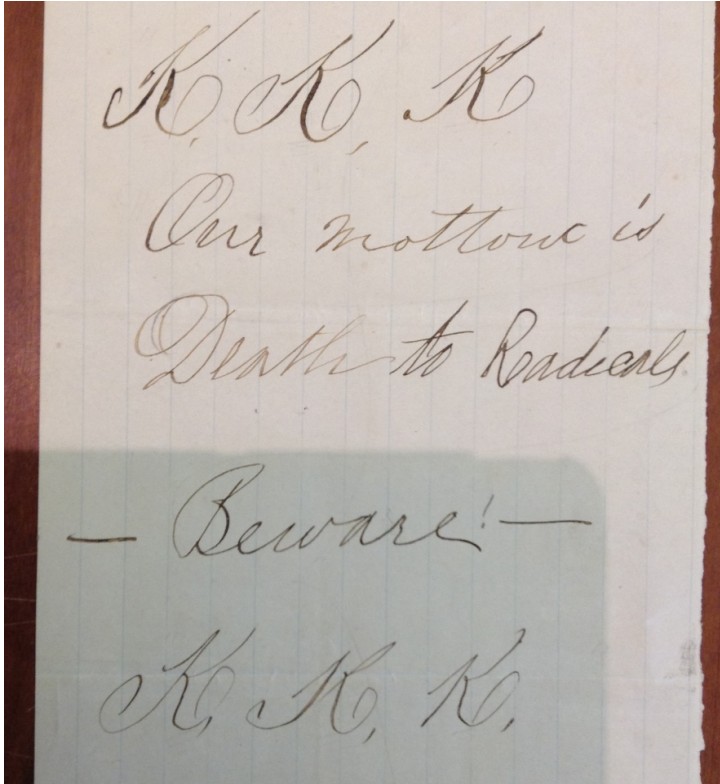 K, K, K
Our mottoux is
Death to Radicals.
— Beware! —
K, K, K,